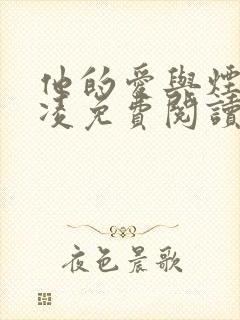 他的愛與煙
凌免費閱讀
夜色晨歌